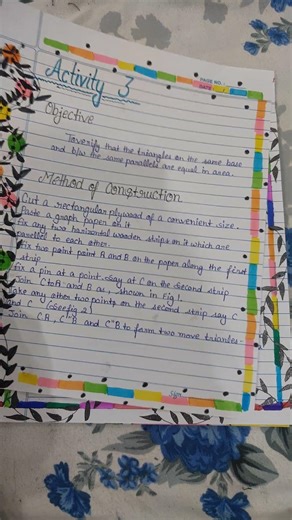 PAGE NO.:
DATE:
Activity 3
Objective
To verify that the triangles on the same base
and b/w the same parallels are equal in area.
Method of Construction
Cut a rectangular plywood of a convenient size.
Paste a graph paper on it
Fix any two horizontal wooden strips on it which are
parellel to each other.
Fix two point point A and B on the paper along the first
strip
Fix a pin at a point say at C on the second strip
Join C to A and B as shown in Fig 1.
Take any other two points on the second strip say C
and C (See fig 2)
Join C A, C" B and C" B to form two more trianles